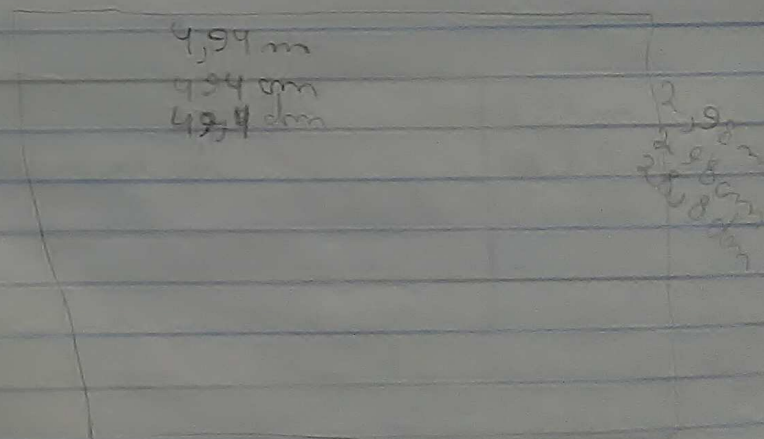 4,94 m
494 cm
49,4 dm
2,98 m
298 cm
28,8 dm